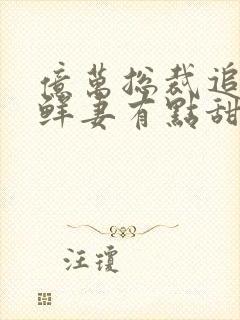 億萬總裁追
鮮妻有點甜
汪瓊